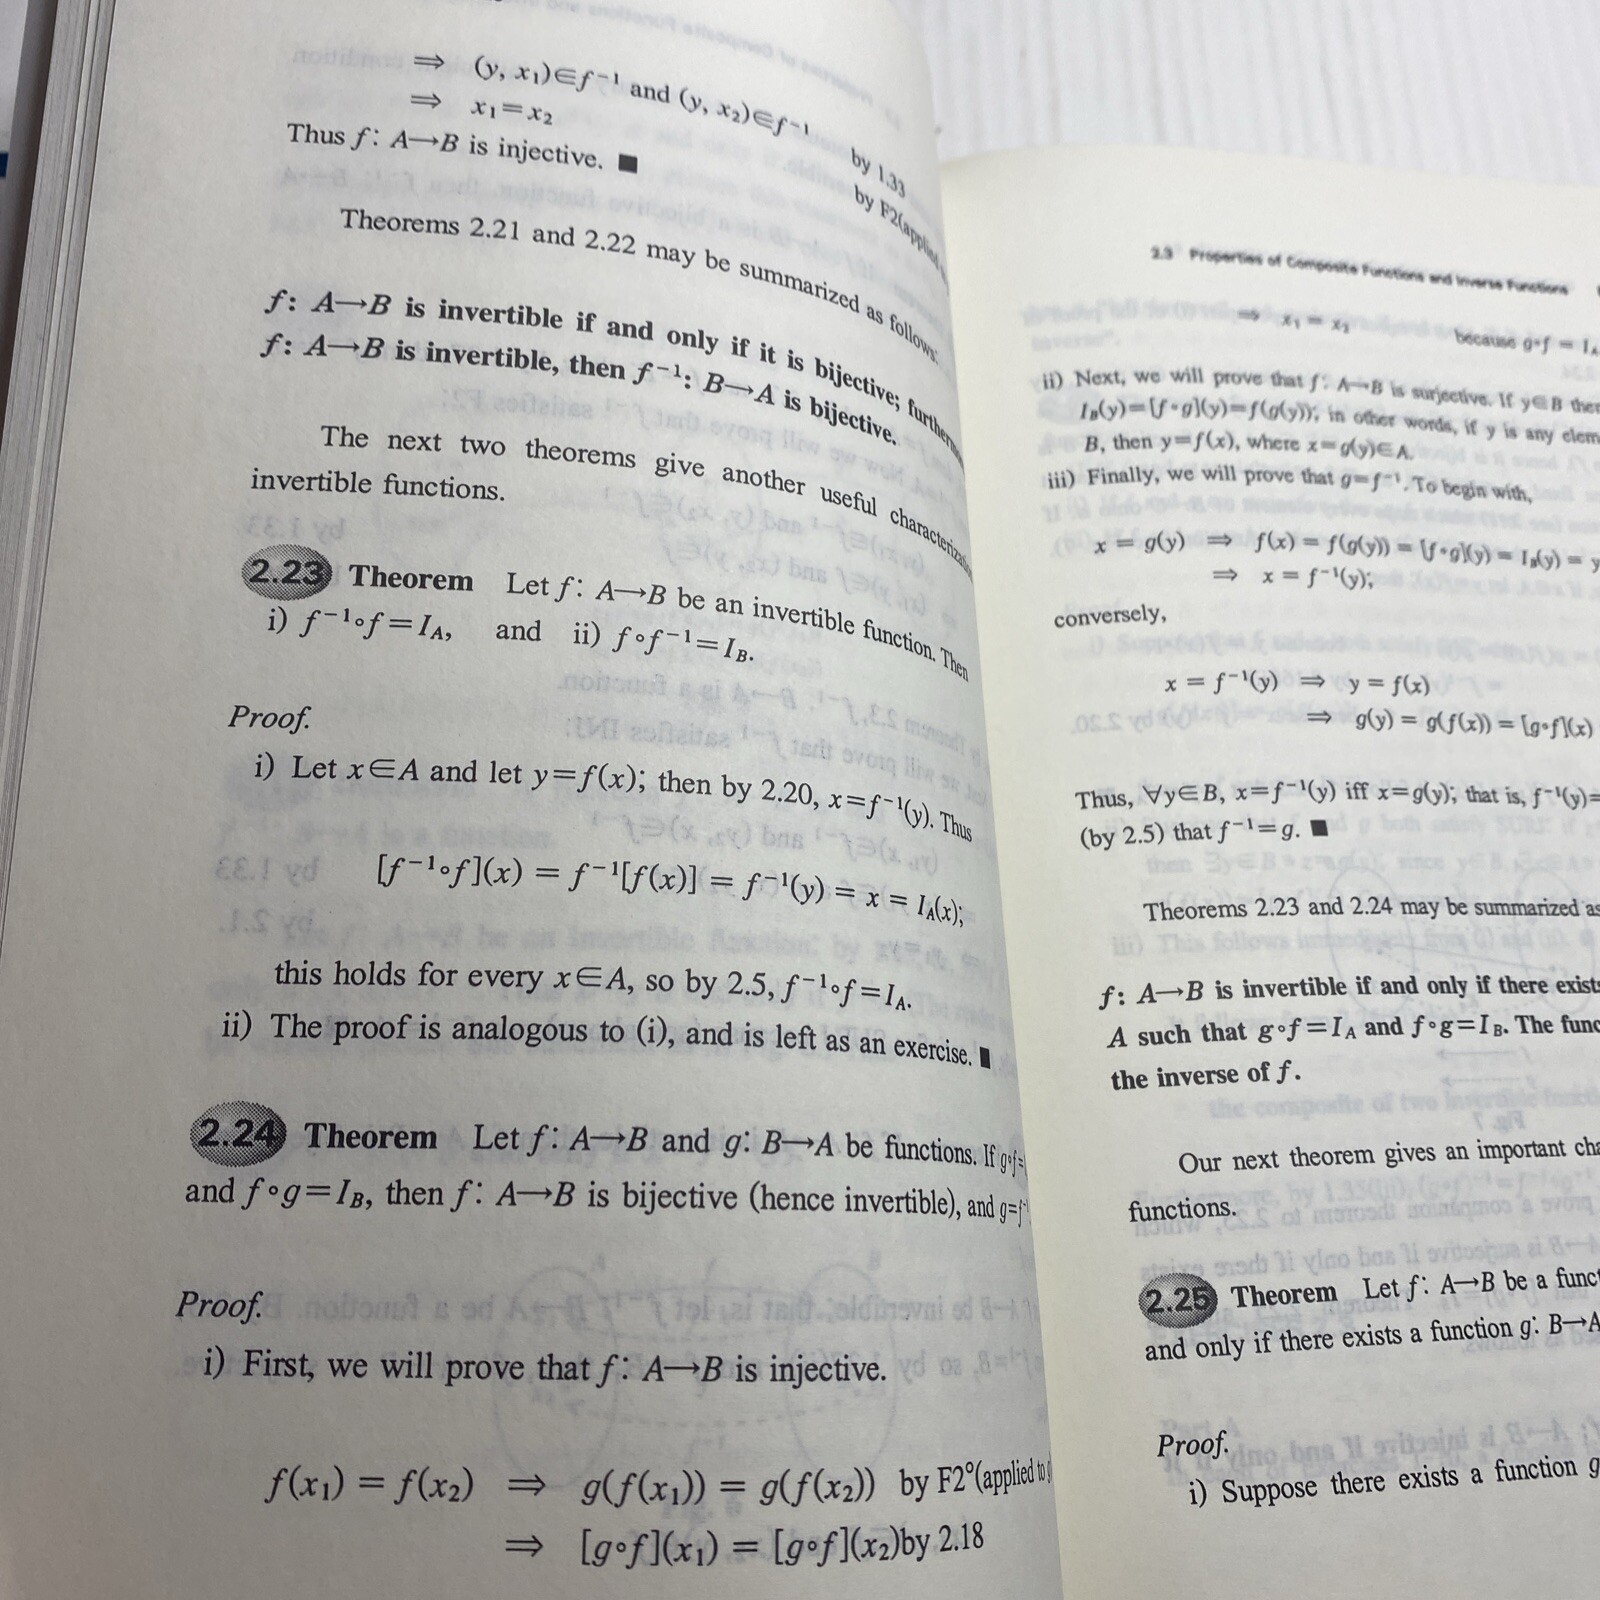 ⇒ (y, x₁)∈f⁻¹ and (y, x₂)∈f⁻¹ by 1.33
⇒ x₁=x₂ by F2(applied
Thus f: A→B is injective. ■
Theorems 2.21 and 2.22 may be summarized as follows:
f: A→B is invertible if and only if it is bijective;
f: A→B is invertible, then f⁻¹: B→A is bijective.
The next two theorems give another useful
invertible functions.
2.23 Theorem Let f: A→B be an invertible function. Then
i) f⁻¹∘f=I_A, and ii) f∘f⁻¹=I_B.
Proof.
i) Let x∈A and let y=f(x); then by 2.20, x=f⁻¹(y). Thus
[f⁻¹∘f](x) = f⁻¹[f(x)] = f⁻¹(y) = x = I_A(x);
this holds for every x∈A, so by 2.5, f⁻¹∘f=I_A.
ii) The proof is analogous to (i), and is left as an exercise. ■
2.24 Theorem Let f: A→B and g: B→A be functions. If g∘f=
and f∘g=I_B, then f: A→B is bijective (hence invertible), and g=f⁻¹
Proof.
i) First, we will prove that f: A→B is injective.
f(x₁) = f(x₂) ⇒ g(f(x₁)) = g(f(x₂)) by F2°(applied to g
⇒ [g∘f](x₁) = [g∘f](x₂)by 2.18
2.3 Properties of Composite Functions and Inverse Functions
⇒ x₁ = x₂ because g∘f = I_A
ii) Next, we will prove that f: A→B is surjective. If y∈B then
I_B(y)=[f∘g](y)=f(g(y)); in other words, if y is any elem
B, then y=f(x), where x=g(y)∈A.
iii) Finally, we will prove that g=f⁻¹. To begin with,
x = g(y) ⇒ f(x) = f(g(y)) = [f∘g](y) = I_B(y) = y
⇒ x = f⁻¹(y);
conversely,
x = f⁻¹(y) ⇒ y = f(x)
⇒ g(y) = g(f(x)) = [g∘f](x)
Thus, ∀y∈B, x=f⁻¹(y) iff x=g(y); that is, f⁻¹(y)=
(by 2.5) that f⁻¹=g. ■
Theorems 2.23 and 2.24 may be summarized as
f: A→B is invertible if and only if there exists
A such that g∘f=I_A and f∘g=I_B. The func
the inverse of f.
Our next theorem gives an important cha
functions.
2.25 Theorem Let f: A→B be a funct
and only if there exists a function g: B→A
Proof.
i) Suppose there exists a function g